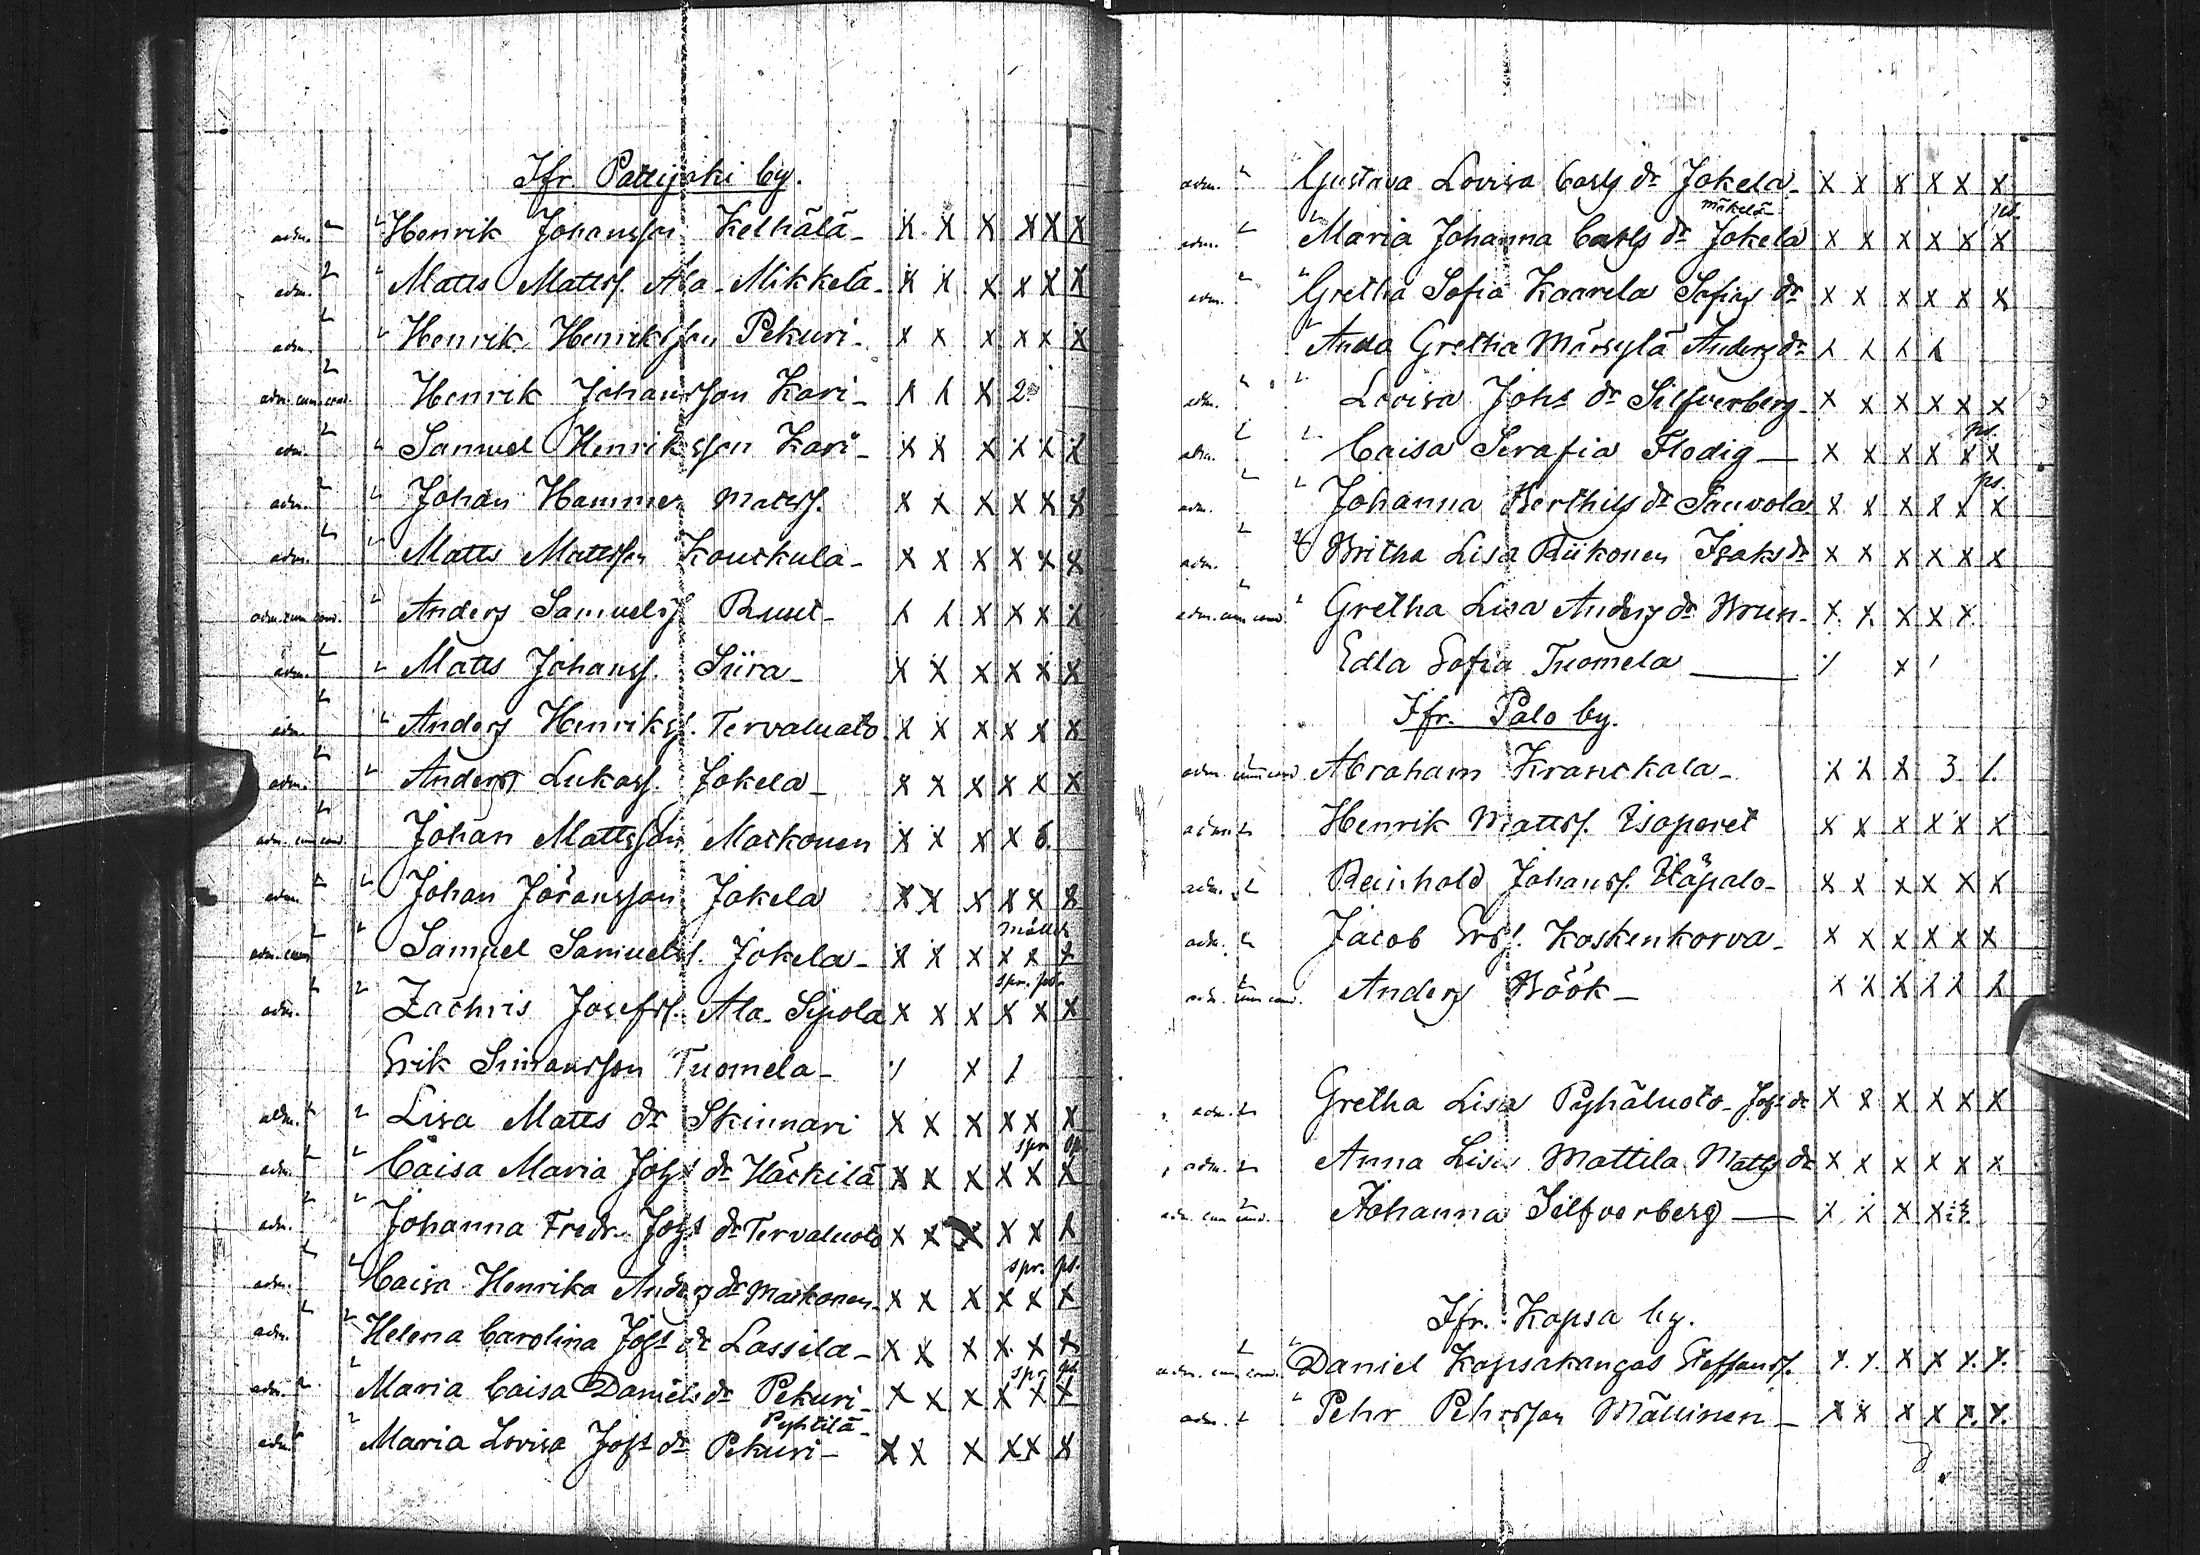 Ifr Pattijoki by.
adm. Henrik Johansson Kelhälä - x x x x x x
adm. Matts Mattss. Ala-Mikkela - x x x x x x
adm. Henrik Henriksson Pekuri - x x x x x x
adm. cum cond. Henrik Johansson Kari - x 2
adm. Samuel Henriksson Kari - x x x x x x
adm. Johan Hammer Matss. x x x x x x
adm. Matts Mattsson Kouckula - x x x x x x
adm. cum cond. Anders Samuelss. Ruut - x x x x
adm. Matts Johanss. Siira - x x x x x x
adm. Anders Henrikss. Tervaluoto x x x x x x
adm. Anders Lukass. Jokela - x x x x x x
adm. cum cond. Johan Mattsson Markonen x x x x 6.
adm. Johan Jöransson Jokela x x x x x x
adm. cum Samuel Samuelss. Jokela - x x x x x x
spr. ps.
adm. Zachris Josefss. Ala-Sipola x x x x x x
Erik Simonsson Tuomela - x
adm. Lisa Matts dr Skinnari x x x x x x
adm. Caisa Maria Johs dr Häckilä x x x x x x
adm. Johanna Fredr. Johs dr Tervaluoto x x x x x x
spr. ps.
adm. Caisa Henrika Anders dr Markonen - x x x x x x
adm. Helena Carolina Johs dr Lassila - x x x x x x
spr. ps.
adm. Maria Caisa Daniels dr Pekuri - x x x x x x
Pyhtilä -
adm. Maria Lovisa Johs dr Pekuri - x x x x x x
adm. Gustava Lovisa Carls dr Jokela - x x x x x x
mäkelä ps.
adm. Maria Johanna Carls dr Jokela x x x x x x
adm. Gretha Sofia Kaarela Sofias dr x x x x x x
Anda Gretha Märsylä Anders dr
adm. Lovisa Johs dr Silfverberg - x x x x x x
ps.
adm. Caisa Serafia Flodig — x x x x x x
ps.
adm. Johanna Berthils dr Sauvola x x x x x x
adm. Britha Lisa Riikonen Isaks dr x x x x x x
adm. cum cond. Gretha Lisa Anders dr Brun - x x x x x
Edla Sofia Tuomela — x
Ifr. Palo by.
adm. cum cond. Abraham Kranckala - x x x 3
adm. Henrik Mattss. Isoperet x x x x x x
adm. Reinhold Johanss. Ylipalo - x x x x x x
adm. Jacob Ers s. Koskenkorva - x x x x x x
adm. cum cond. Anders Höök - x x x x x x
adm. Gretha Lisa Pyhäluoto - Johs dr x x x x x x
adm. Anna Lisa Mattila Matts dr x x x x x x
adm. cum cond. Johanna Silfverberg — x x x x
Ifr. Kopsa by.
adm. cum cond. Daniel Kopsakangas Steffanss. x x x x x x
adm. Pehr Pehrsson Mällinen - x x x x x x